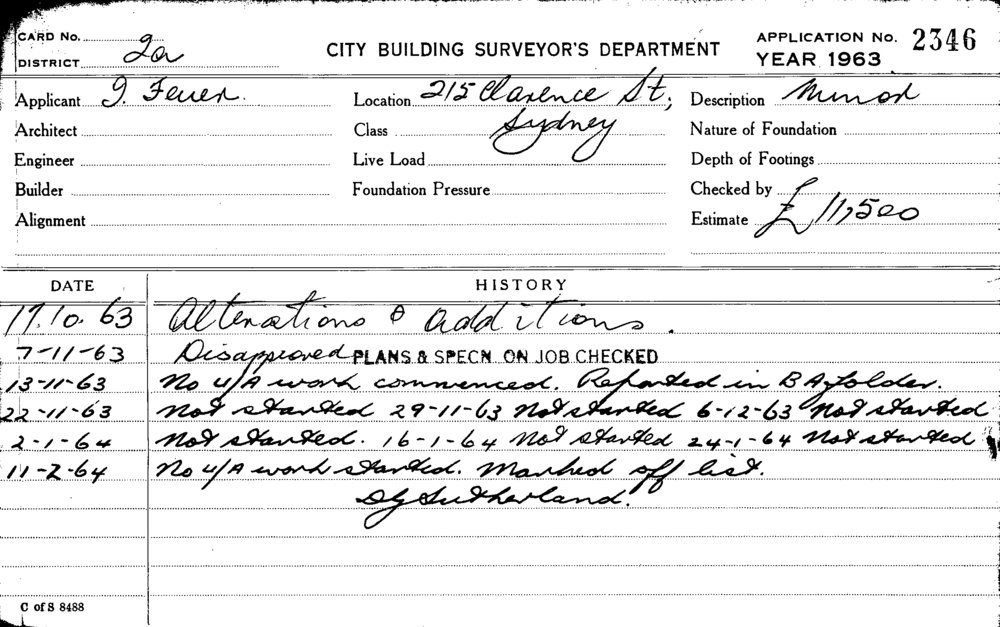 CARD No.
DISTRICT 2a
CITY BUILDING SURVEYOR'S DEPARTMENT
APPLICATION No. 2346
YEAR 1963
Applicant I. Feuer.
Location 215 Clarence St,
Sydney
Description Minor
Architect
Class
Nature of Foundation
Engineer
Live Load
Depth of Footings
Builder
Foundation Pressure
Checked by
Alignment
Estimate £11,500
DATE HISTORY
17.10.63 Alterations & additions.
7-11-63 Disapproved PLANS & SPECN. ON JOB CHECKED
13-11-63 No U/A work commenced. Reported in BA folder.
22-11-63 Not started 29-11-63 Not started 6-12-63 Not started
2-1-64 Not started. 16-1-64 Not started 24-1-64 Not started
11-2-64 No U/A work started. Marked off list.
DG Sutherland.
C of S 8488